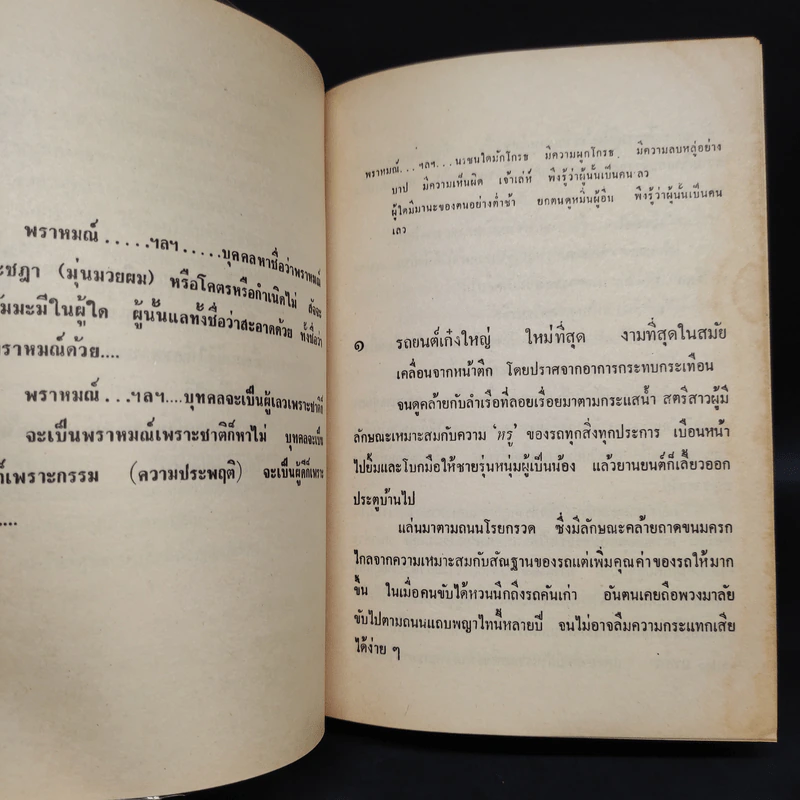 พราหมณ์ .....ฯลฯ.....บุคคลหาชื่อว่าพราหมณ์
ะชฎา (มุ่นมวยผม) หรือโคตรหรือกำเนิดไม่ สัจจะ
ัมมะมีในผู้ใด ผู้นั้นแลทั้งชื่อว่าสะอาดด้วย ทั้งชื่อว่า
ราหมณ์ด้วย....
พราหมณ์ ...ฯลฯ....บุคคลจะเป็นผู้เลวเพราะชาติก็
จะเป็นพราหมณ์เพราะชาติก็หาไม่ บุคคลจะเป็น
์เพราะกรรม (ความประพฤติ) จะเป็นผู้ดีก็เพราะ
....
พราหมณ์...ฯลฯ...นรชนใดมักโกรธ มีความผูกโกรธ มีความลบหลู่อย่าง
บาป มีความเห็นผิด เจ้าเล่ห์ พึงรู้ว่าผู้นั้นเป็นคนเลว
ผู้ใดมีมานะของตนอย่างต่ำช้า ยกตนดูหมิ่นผู้อื่น พึงรู้ว่าผู้นั้นเป็นคน
เลว
๑ รถยนต์เก๋งใหญ่ ใหม่ที่สุด งามที่สุดในสมัย
เคลื่อนจากหน้าตึก โดยปราศจากอาการกระทบกระเทือน
จนดูคล้ายกับลำเรือที่ลอยเรื่อยมาตามกระแสน้ำ สตรีสาวผู้มี
ลักษณะเหมาะสมกับความ 'หรู' ของรถทุกสิ่งทุกประการ เบือนหน้า
ไปยิ้มและโบกมือให้ชายรุ่นหนุ่มผู้เป็นน้อง แล้วยานยนต์ก็เลี้ยวออก
ประตูบ้านไป
แล่นมาตามถนนโรยกรวด ซึ่งมีลักษณะคล้ายถาดขนมครก
ไกลจากความเหมาะสมกับสัณฐานของรถแต่เพิ่มคุณค่าของรถให้มาก
ขึ้น ในเมื่อคนขับได้หวนนึกถึงรถคันเก่า อันตนเคยถือพวงมาลัย
ขับไปตามถนนแถบพญาไทนี้หลายปี จนไม่อาจลืมความกระแทกเสีย
ได้ง่าย ๆ